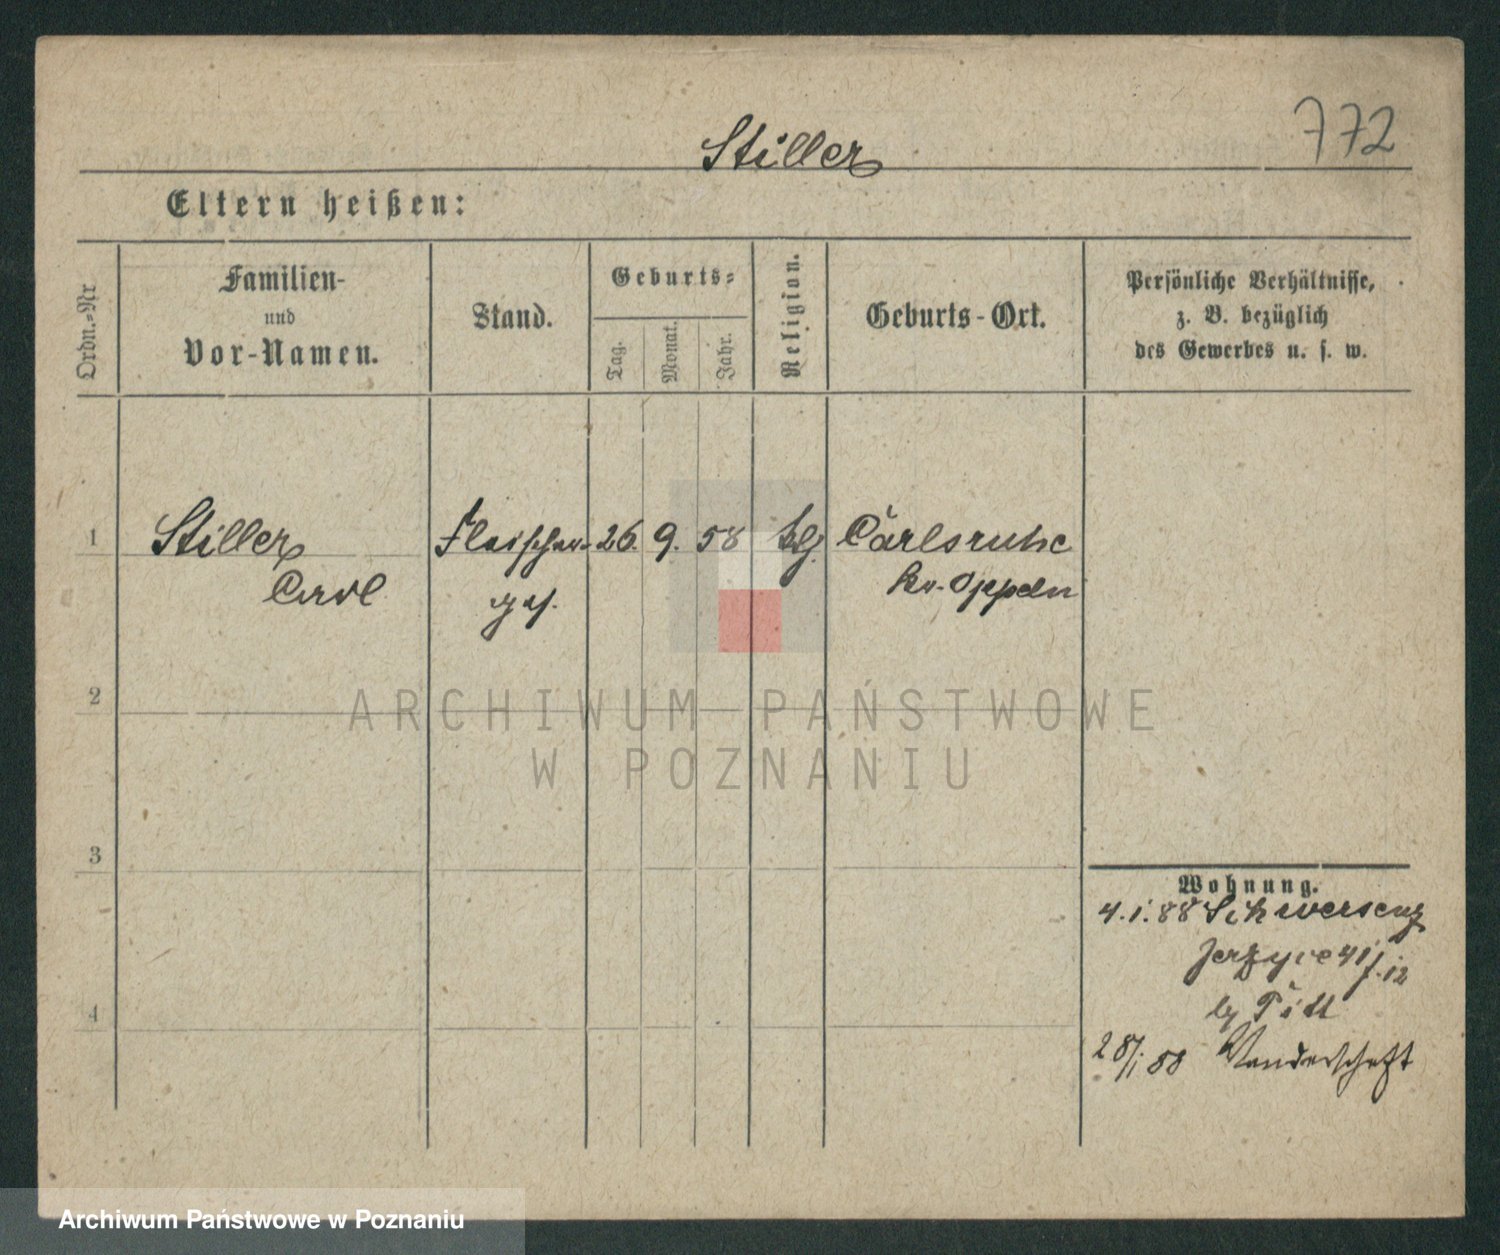 772
Stiller
Eltern heißen:
Ordn.=Nr
Familien-
und
Vor-Namen.
Stand.
Geburts=
Tag.
Monat.
Jahr.
Religion.
Geburts-Ort.
Persönliche Verhältnisse,
z. B. bezüglich
des Gewerbes u. s. w.
1
Stiller
Carl
Fleischer-
ges.
26.
9.
58
Carlsruhe
Kr. Oppeln
2
3
4
Wohnung.
4.1.88 Schwersenz
Jerzyce 41
28/1 88 Wanderschaft
ARCHIWUM PAŃSTWOWE
W POZNANIU
Archiwum Państwowe w Poznaniu